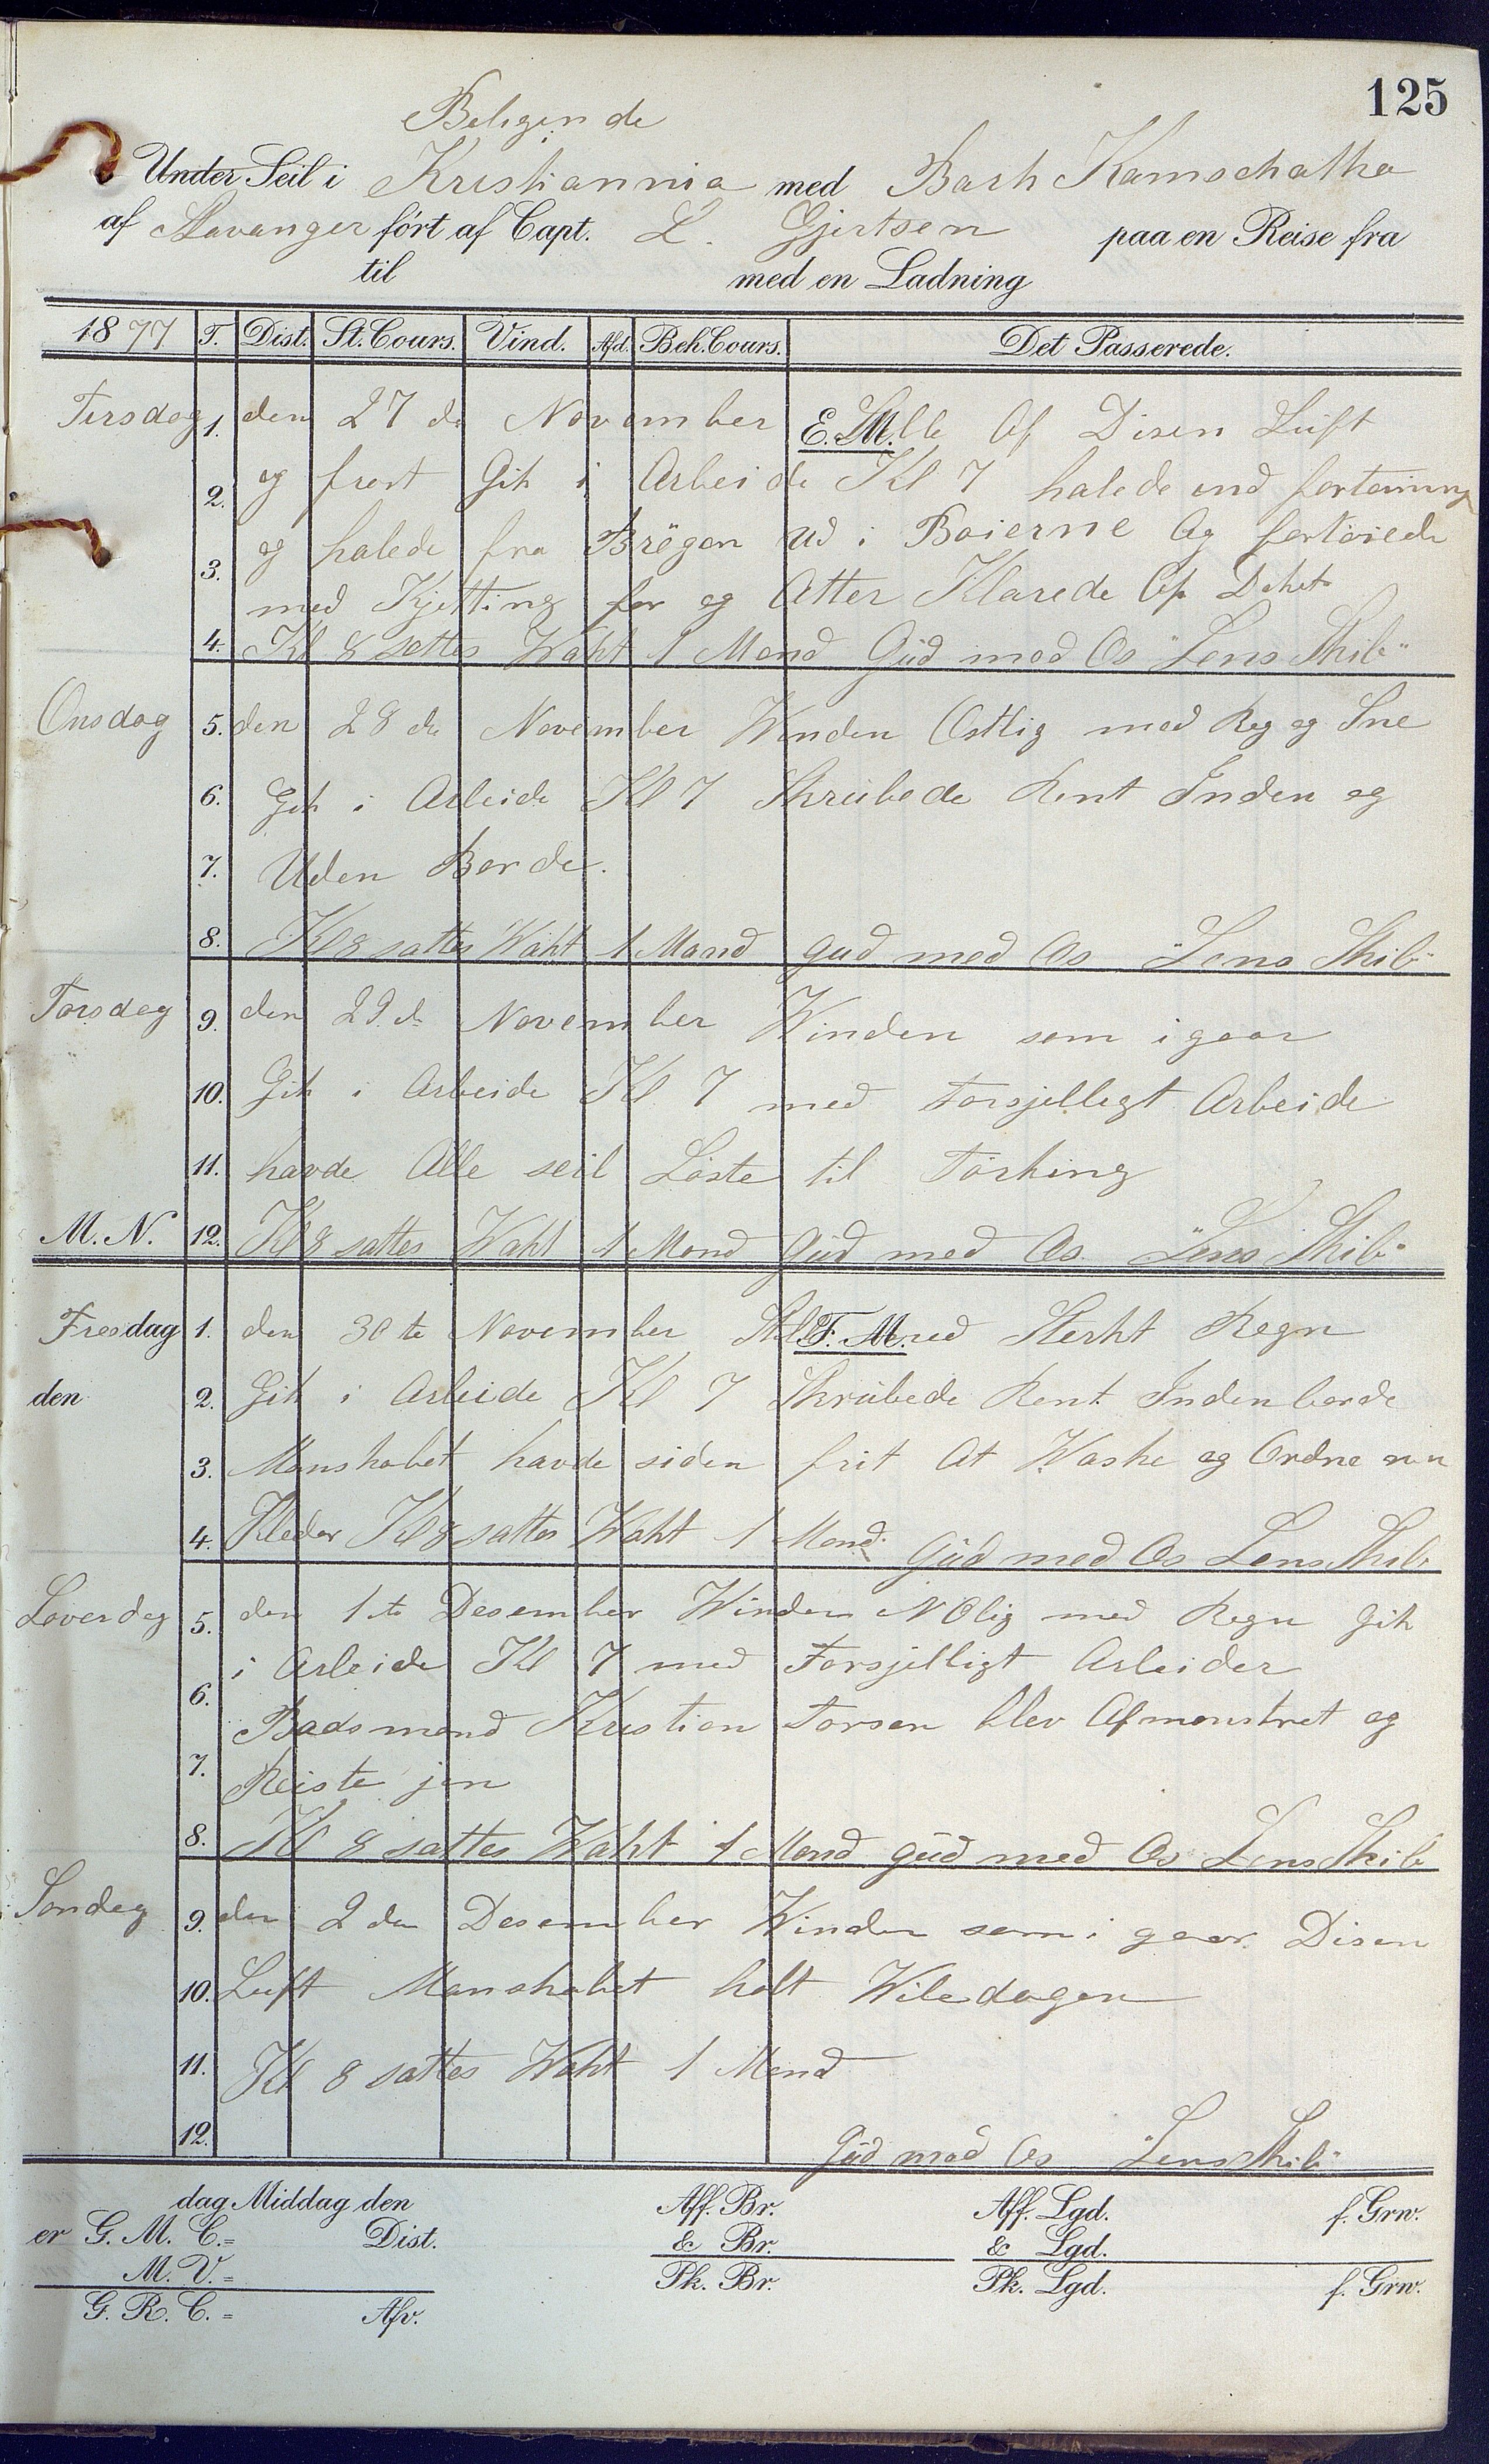 125
Beligende
Under Seil i Kristiannia med Bark Kamschatka
af Stavanger fört af Capt. L. Gjertsen paa en Reise fra
til med en Ladning
1877 T. Dist. St. Cours. Vind. Afd. Beh. Cours. Det Passerede.
Tirsdag 1. den 27 de November E. M. Stille Af Disen Luft
2. og frost Gik i Arbeide Kl 7 halede ind fortöining
3. og halede fra Brögen ud i Boierne Og fortöiede
med Kjetting for og Atter Klarede Op Deket
4. Kl 8 sattes Wakt 1 Mand Gud med Os "Lens Skib"
Onsdag 5. den 28 de November Winden Ostlig med Reg og Sne
6. Gik i Arbeide Kl 7 Skrubede Rent Inden og
7. Uden Borde.
8. Kl 8 sattes Wakt 1 Mand Gud med Os "Lens Skib"
Torsdag 9. den 29 de November Winden som i gaar
10. Gik i Arbeide Kl 7 med Forsjelligt Arbeide
11. havde Alle seil Löste til Törking
M. N. 12. Kl 8 sattes Wakt 1 Mand Gud med Os "Lens Skib"
Fresdag 1. den 30 te November F. M. med Sterkt Regn
den 2. Gik i Arbeide Kl 7 Skrubede Rent Inden borde
3. Manskabet havde siden frit At Waske og Ordne
4. Kleder Kl 8 sattes Wakt 1 Mand Gud med Os Lens Skib
Loverdag 5. den 1 te Desember Winden NOlig med Regn Gik
i Arbeide Kl 7 med Forsjelligt Arbeider
6. Baadsmand Kristian Torsen blev Afmonstret og
7. Reiste jem
8. Kl 8 sattes Wakt 1 Mand Gud med Os Lens Skib
Sondag 9. den 2 den Desember Winden som i gaar Disen
10. Luft Manskabet holt Wiledagen
11. Kl 8 sattes Wakt 1 Mand
12. Gud med Os "Lens Skib"
dag Middag den Aff. Br. Aff. Lgd. f. Grw.
er G. M. C. = Dist. & Br. & Lgd.
M. V. = Pk. Br. Pk. Lgd. f. Grw.
G. R. C. = Afv.